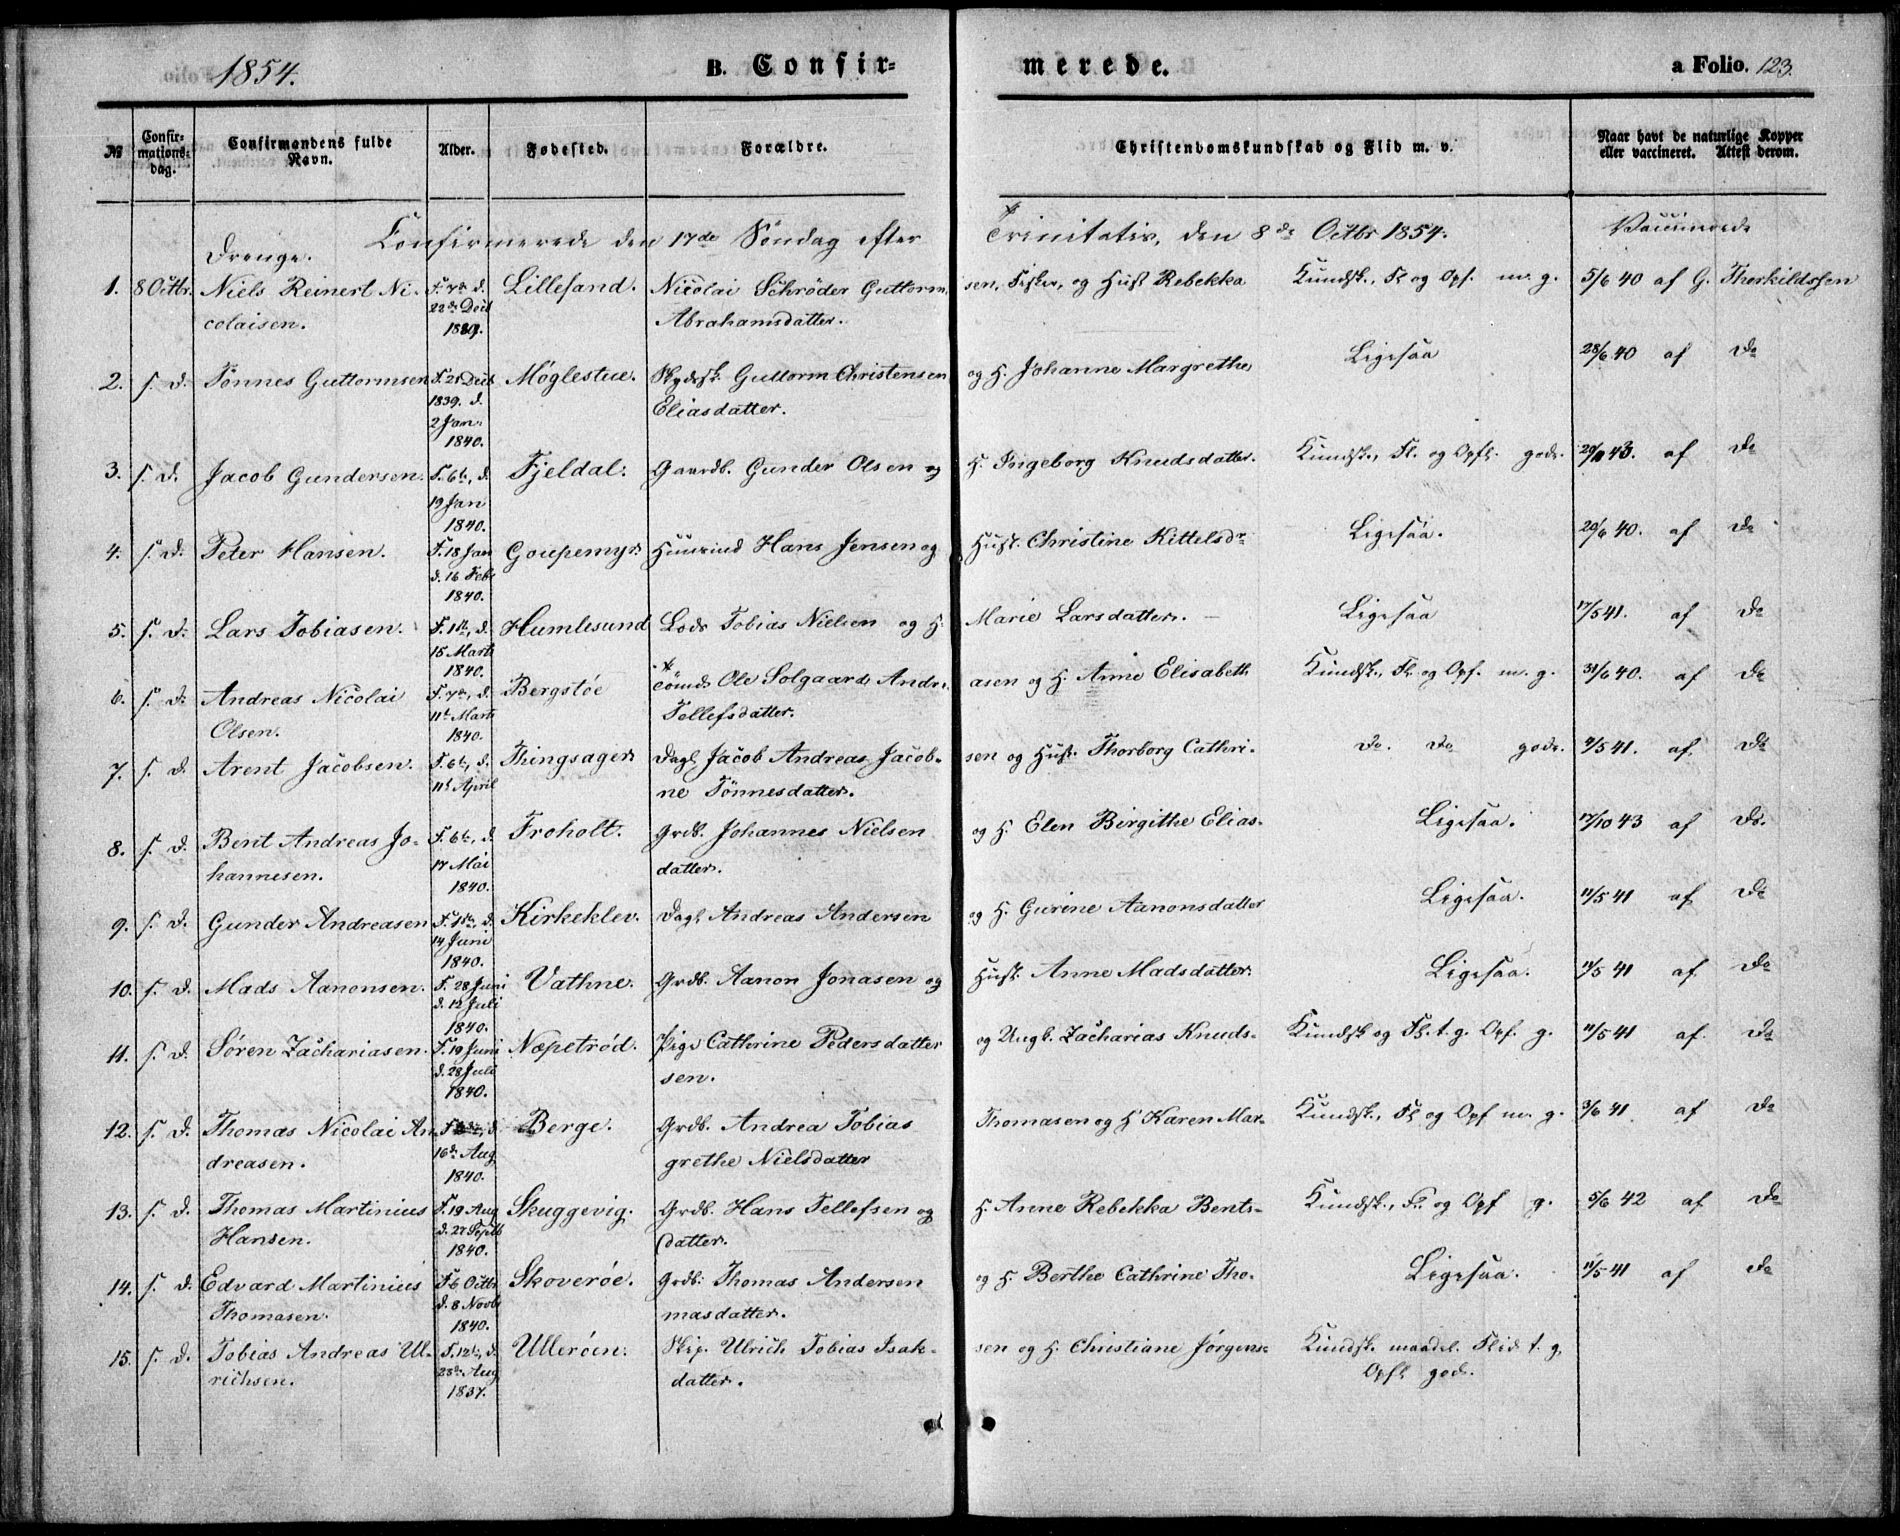 1854. B. Confir= merede. a Folio. 123.
№ Confir=mations=dag. Confirmandens fulde Navn. Alder. Fødested. Forældre. Christendomskundskab og Flid m. v. Naar havt de naturlige Kopper eller vaccineret. Attest derom.
Confirmerede den 17de Søndag efter Trinitatis, den 8de Octbr 1854. Vaccinerede
Drenge.
1. 8 Octbr. Niels Reinert Ni- F. 7de d. Lillesand. Nicolai Schrøder Guttorm- sen, Fisker, og Hust Rebekka Kundsk., Fl og Opf. m. g. 5/6 40 af G. Thorkildssen
colaisen. 22de Decb 1839. Abrahamsdatter.
2. s. d. Tønnes Guttormsen F. 21 Decb Møglestue. Skydssk. Guttorm Christensen og H. Johanne Margrethe Ligesaa 28/6 40 af Do
1839. d. Eliasdatter.
2 Jan.
1840.
3. s. d. Jacob Gundersen. F. 6te, d. Fjeldal. Gaardb. Gunder Olsen og H. Ingeborg Knudsdatter. Kundsk., Fl. og Opf. gode. 43. af Do
19 Jan
1840.
4. s. d. Peter Hansen. F. 18 Jan Goupemyr Huusmd Hans Jensen og Hust. Christine Kittelsdr Ligesaa. 29/6 40. af Do
d. 16 Feb
1840.
5. s. d. Lars Tobiasen. F. 1ste, d. Humlesund Lods Tobias Nielsen og H. Marie Larsdatter. Ligesaa 17/5 41. af Do
15 Marts
1840.
6. s. d. Andreas Nicolai F. 7de, d. Bergstøe Tømd. Ole Solgaard Andre- asen og H. Anne Elisabeth Kundsk., Fl. og Opf. m. g. 40. af Do
Olsen. 11te Marts Tellefsdatter.
1840.
7. s. d. Arent Jacobsen. F. 6te, d. Thingsager Dagl. Jacob Andreas Jacob- sen og Hust. Thorborg Cathri- Do. Do gode. /5 41. af Do
11te April ne Tønnesdatter.
8. s. d. Bent Andreas Jo- F. 6te, d. Froholt. Grdb. Johannes Nielsen og H. Elen Birgithe Elias- Ligesaa. 17/10 43 af Do.
hannesen. 17 Mai datter.
1840.
9. s. d. Gunder Andreasen F. 1ste, d. Kirkeklev. Dagl. Andreas Andersen og H. Gurine Aanonsdatter Ligesaa. 11/5 41 af Do
14 Juni
1840.
10. s. d. Mads Aanonsen. F. 28 Juni Vathne. Grdb. Aanon Jonasen og Hust. Anne Madsdatter Ligesaa. 11/5 41 af Do
d. 12 Juli
1840.
11. s. d. Søren Zachariasen. F. 19 Juni Næpetrød. Pige Cathrine Pedersdatter og Ungk. Zacharias Knuds- Kundsk og Fl. t. g. Opf. g. 11/5 41 af Do
d. 28 Juli sen.
1840.
12. s. d. Thomas Nicolai An- Berge. Grdb. Andrea Tobias Thomasen og H Karen Mar- Kundsk., Fl og Opf m. g. 3/6 41. af Do
dreasen. 16de Aug grethe Nielsdatter
1840.
13. s. d. Thomas Martinius F. 19 Aug Skuggevig. Grdb. Hans Tellefsen og H. Anne Rebekka Bents- Kundsk., Fl. og Opf g. 5/6 42 af Do
Hansen. d. 27 Septb datter.
1840.
14. s. d. Edvard Martinius F. 6 Octbr Skoverøe. Grdb. Thomas Andersen og H. Berthe Cathrine Tho- Ligesaa. 11/5 41 af Do
Thomasen. d. 8 Novb masdatter.
1840.
15. s. d. Tobias Andreas Ul- F. 12te, d. Ullerøen. Skip. Ulrich Tobias Isak- sen og H. Christiane Jørgens- Kundsk. maadel. Flid t. g.
richsen. 23de Aug datter. Opf. god.
1837.